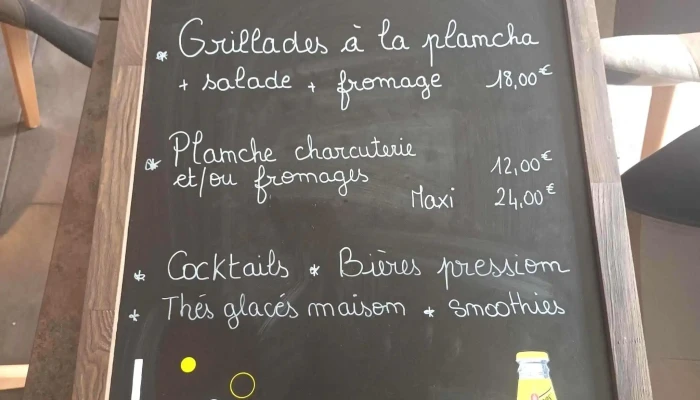 * Grillades à la plancha
+ salade + fromage 18,00€
* Planche charcuterie
et/ou fromages 12,00€
Maxi 24,00€
* Cocktails * Bières pression
* Thés glacés maison * Smoothies